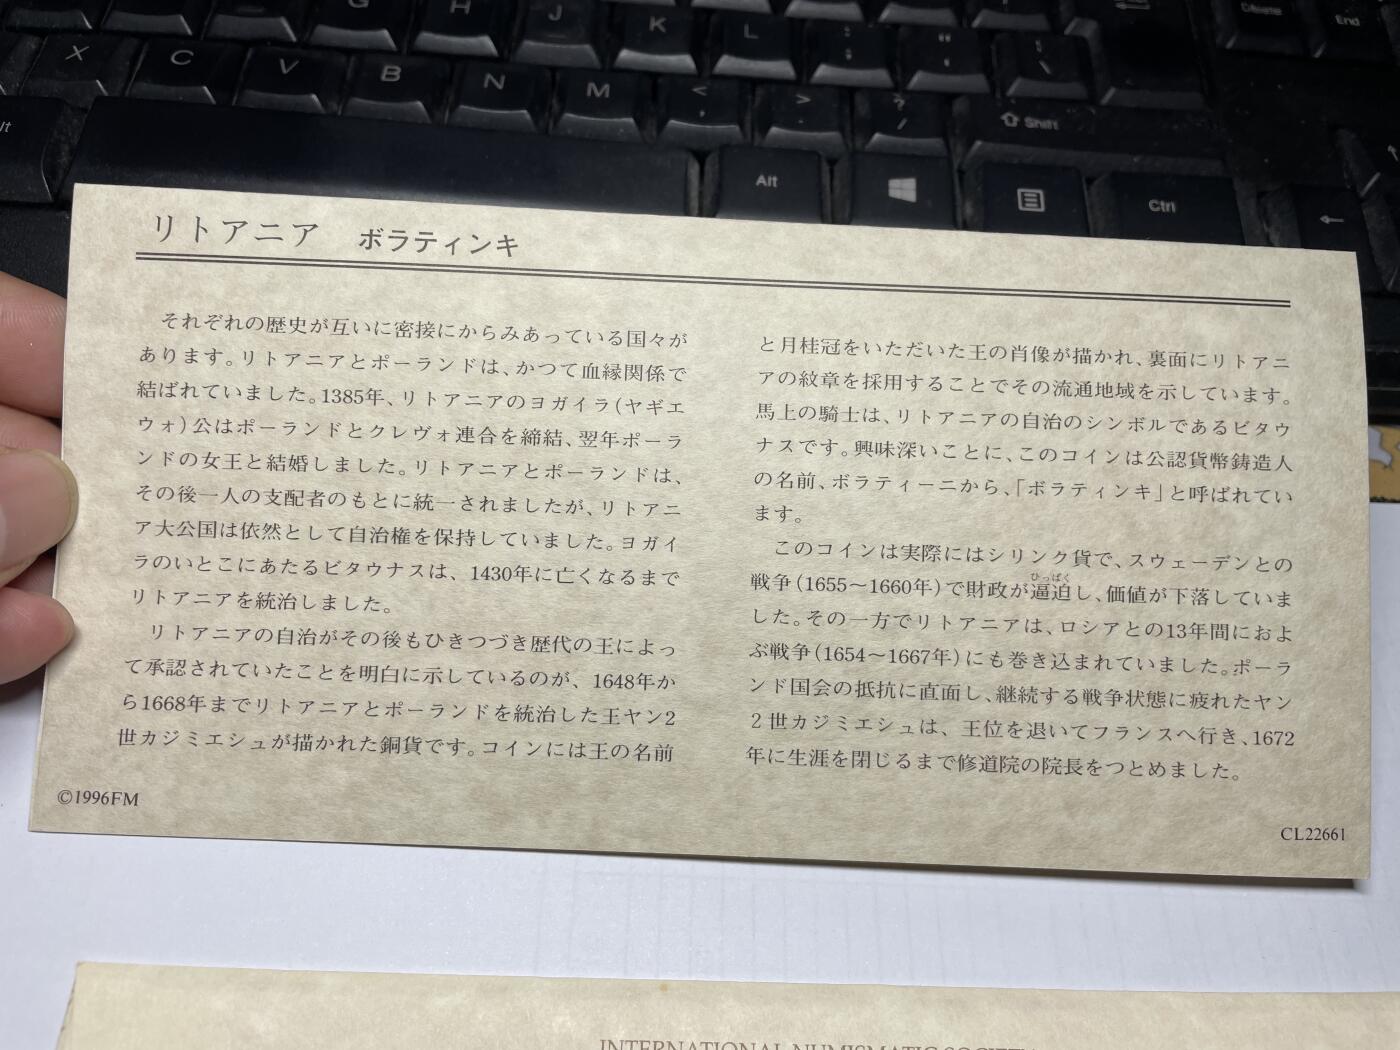 G
H
J
K
L
:
;
"
'
Delete
End
X
C
V
B
N
M
<
,
>
.
?
/
Shift
lt
Alt
Ctrl
リトアニア ボラティンキ
それぞれの歴史が互いに密接にからみあっている国々が
あります。リトアニアとポーランドは、かつて血縁関係で
結ばれていました。1385年、リトアニアのヨガイラ(ヤギエ
ウォ)公はポーランドとクレヴォ連合を締結、翌年ポーラ
ンドの女王と結婚しました。リトアニアとポーランドは、
その後一人の支配者のもとに統一されましたが、リトアニ
ア大公国は依然として自治権を保持していました。ヨガイ
ラのいとこにあたるビタウナスは、1430年に亡くなるまで
リトアニアを統治しました。
リトアニアの自治がその後もひきつづき歴代の王によっ
て承認されていたことを明白に示しているのが、1648年か
ら1668年までリトアニアとポーランドを統治した王ヤン2
世カジミエシュが描かれた銅貨です。コインには王の名前
と月桂冠をいただいた王の肖像が描かれ、裏面にリトアニ
アの紋章を採用することでその流通地域を示しています。
馬上の騎士は、リトアニアの自治のシンボルであるビタウ
ナスです。興味深いことに、このコインは公認貨幣鋳造人
の名前、ボラティーニから、「ボラティンキ」と呼ばれてい
ます。
このコインは実際にはシリンク貨で、スウェーデンとの
ひっぱく
戦争(1655〜1660年)で財政が逼迫し、価値が下落していま
した。その一方でリトアニアは、ロシアとの13年間におよ
ぶ戦争(1654〜1667年)にも巻き込まれていました。ポーラ
ンド国会の抵抗に直面し、継続する戦争状態に疲れたヤン
2世カジミエシュは、王位を退いてフランスへ行き、1672
年に生涯を閉じるまで修道院の院長をつとめました。
©1996FM
CL22661
INTERNATIONAL NUMISMATIC SOCIETY